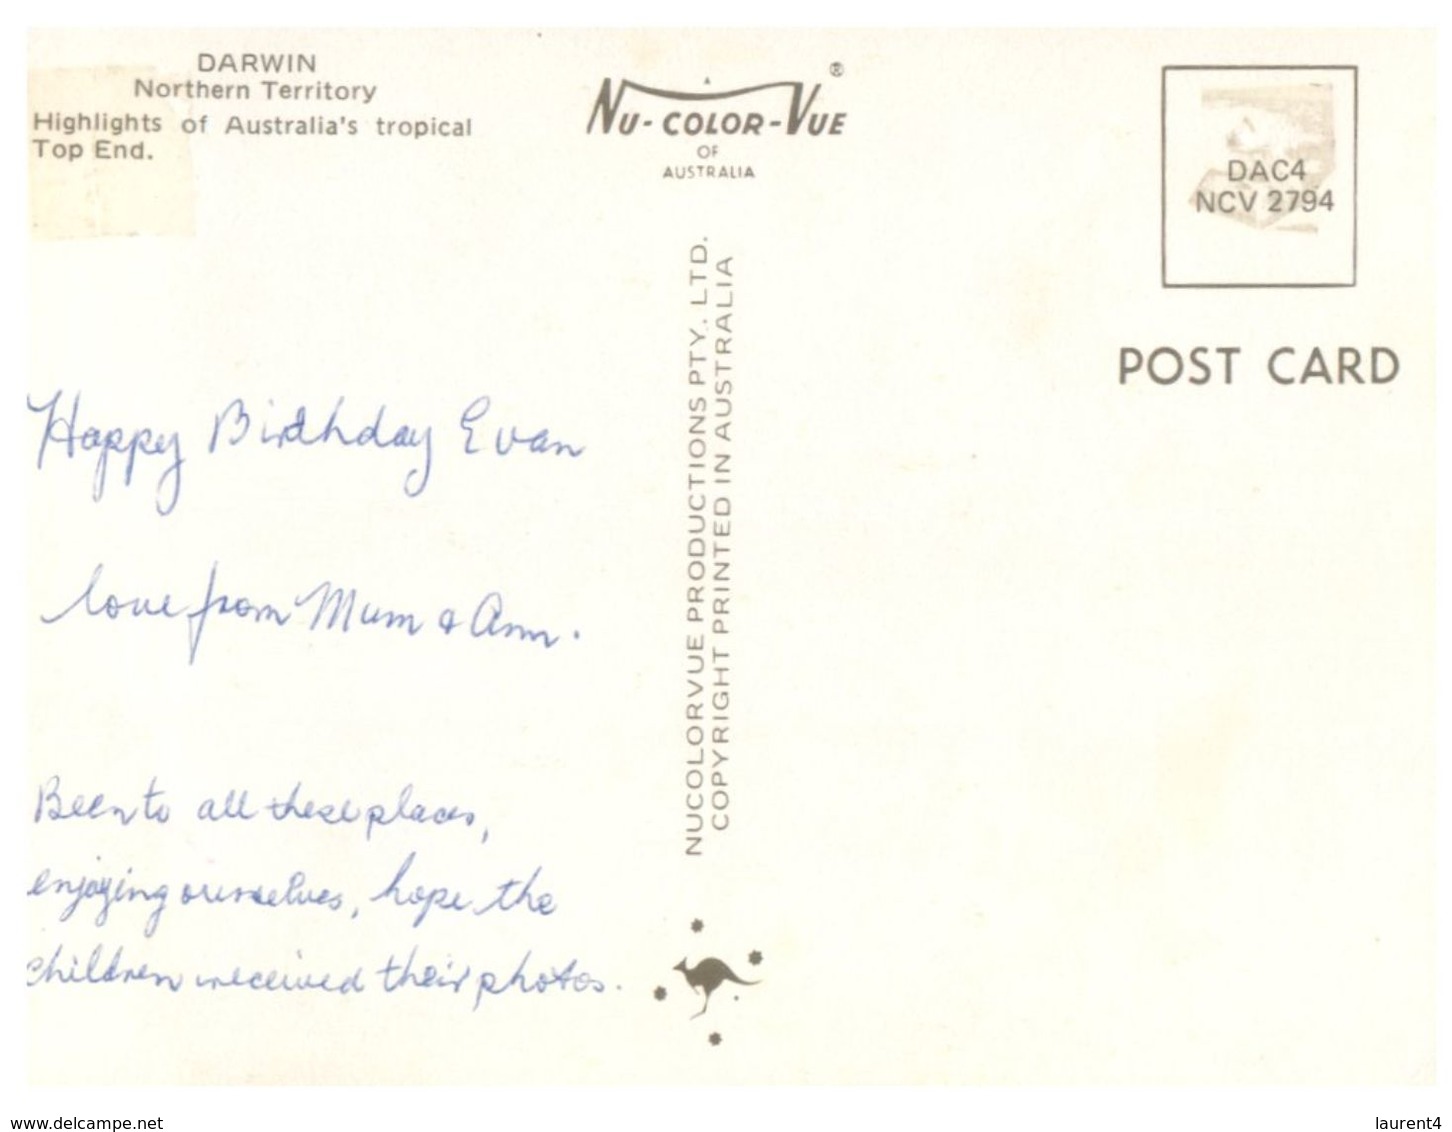 DARWIN
Northern Territory
Highlights of Australia's tropical
Top End.
A
NU-COLOR-VUE ®
OF
AUSTRALIA
DAC4
NCV 2794
POST CARD
NUCOLORVUE PRODUCTIONS PTY. LTD.
COPYRIGHT PRINTED IN AUSTRALIA
Happy Birthday Evan
love from Mum & Ann.
Been to all these places,
enjoying ourselves, hope the
children received their photos.
www.delcampe.net
laurent4